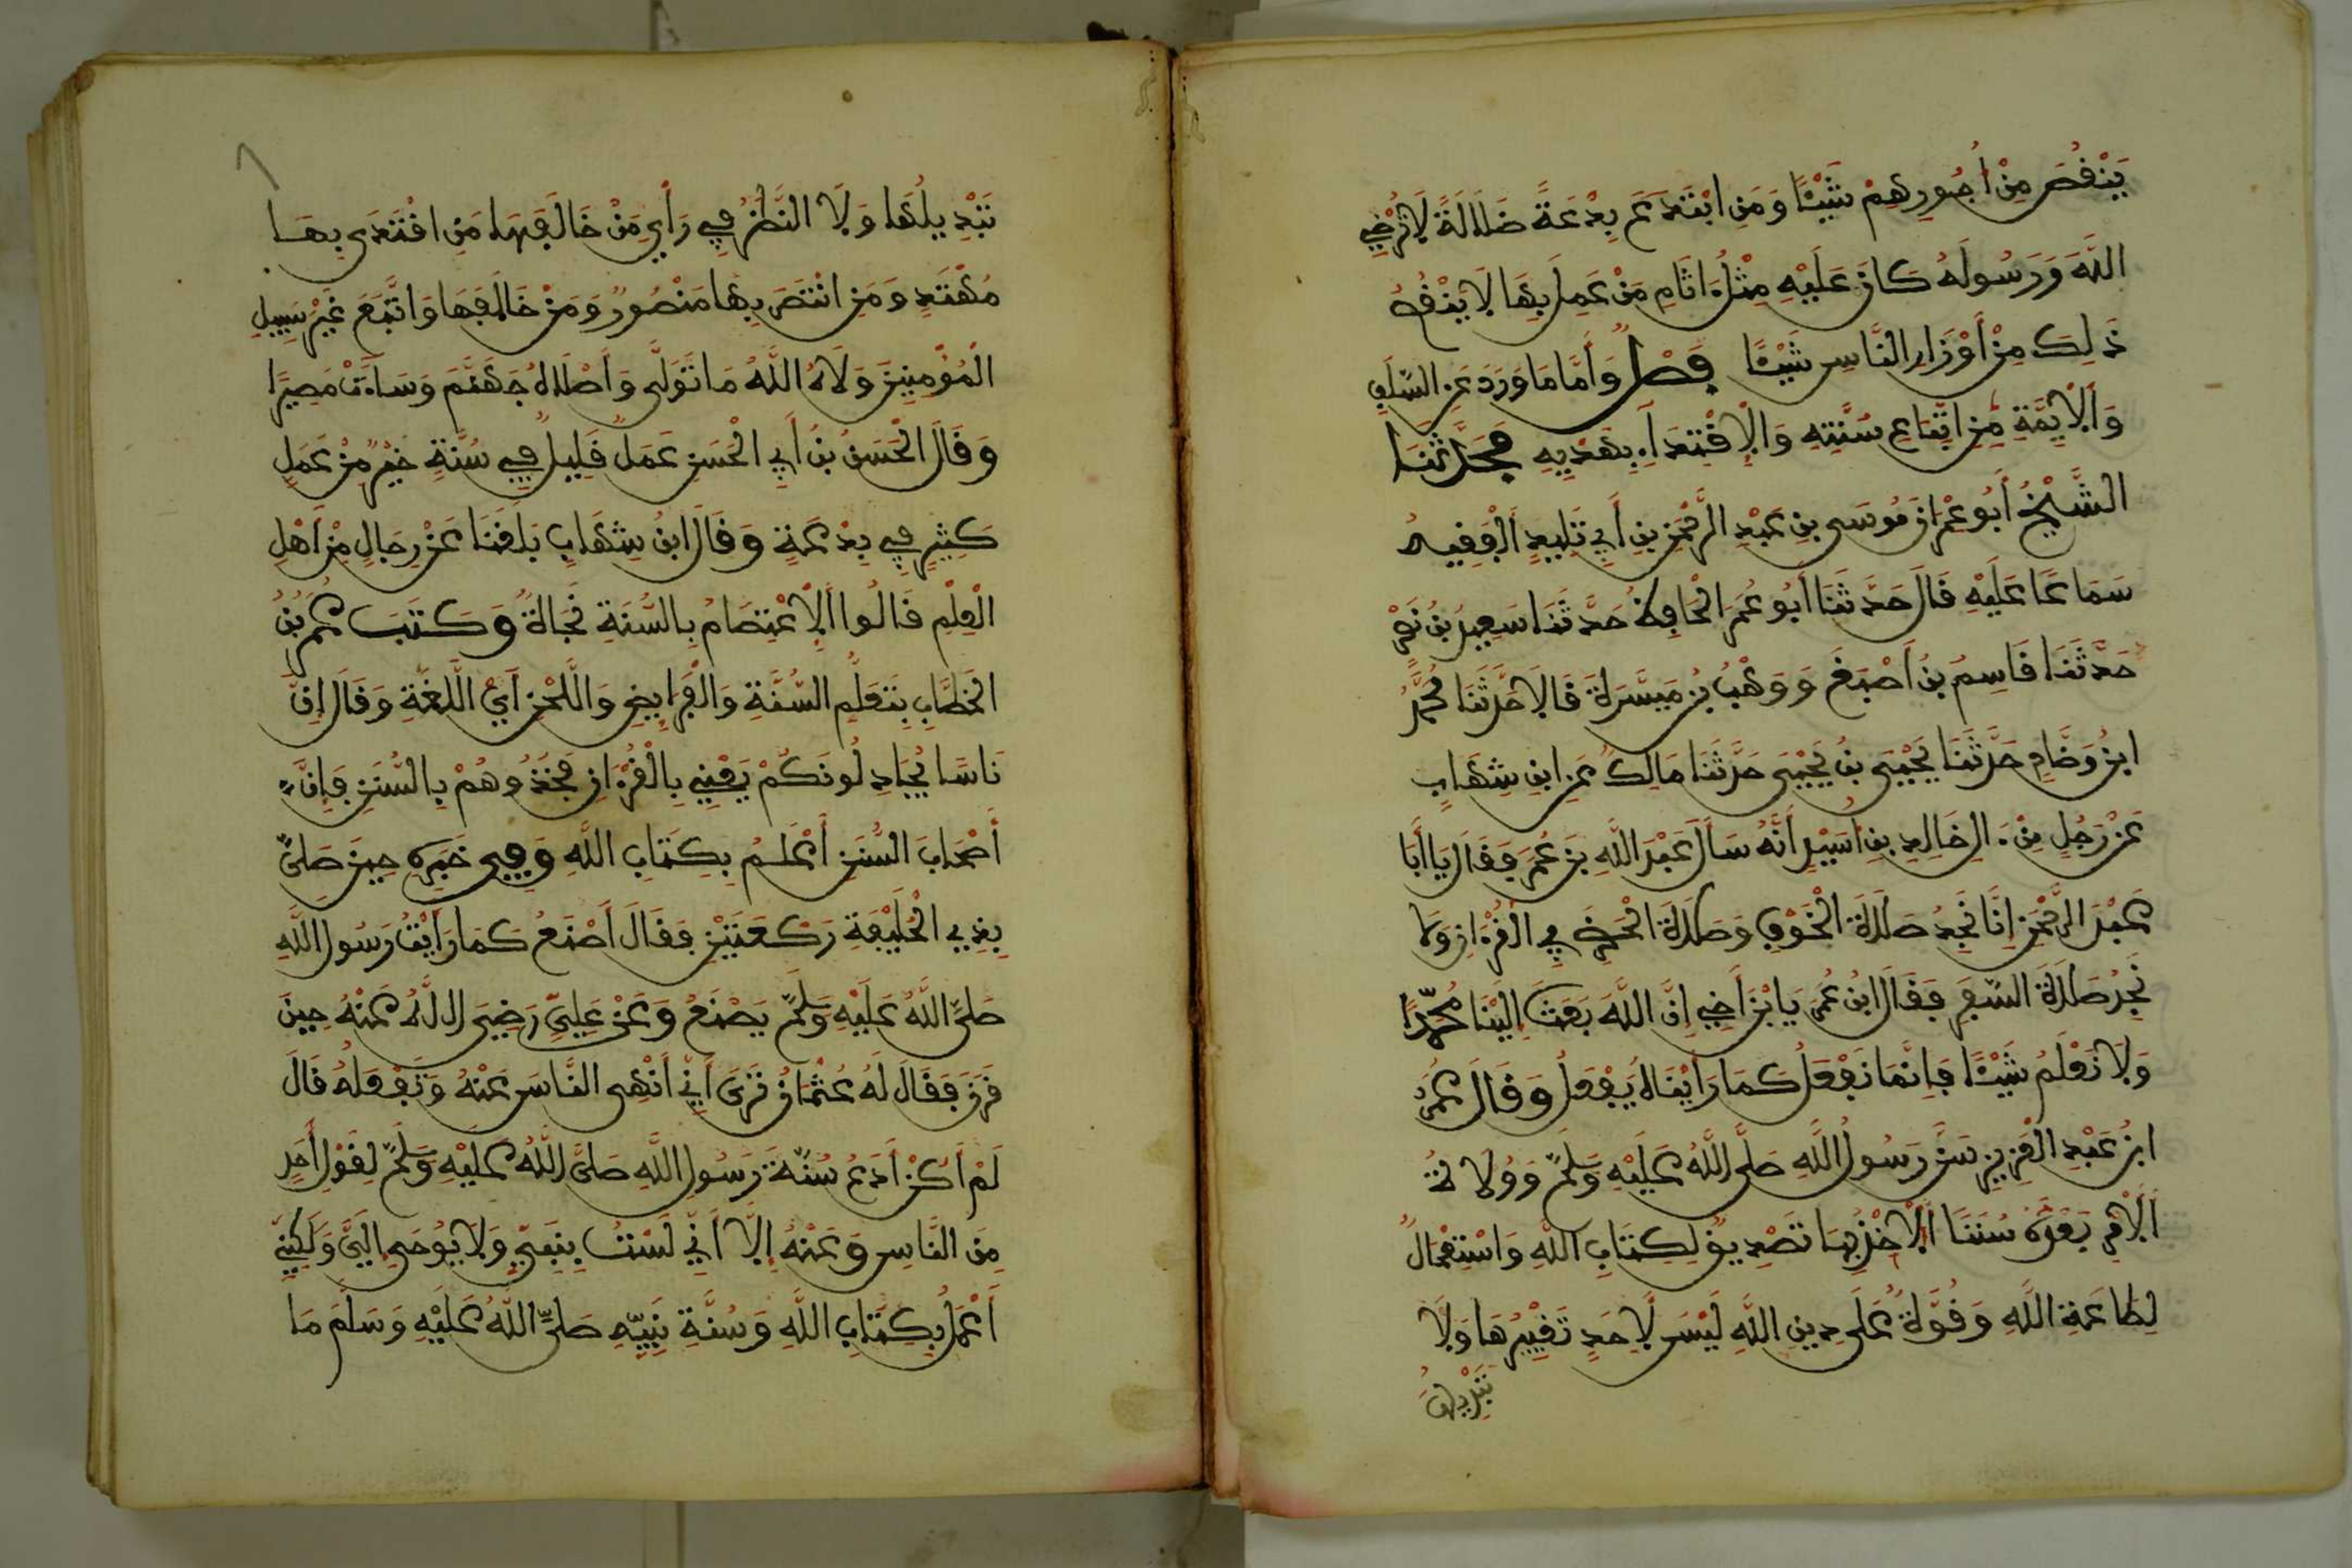 يَنْقُصْ مِنْ أُجُورِهِمْ شَيْئًا وَمَنِ ابْتَدَعَ بِدْعَةً ضَلَالَةً لَا تُرْضِي
اللَّهَ وَرَسُولَهُ كَانَ عَلَيْهِ مِثْلُ ءَاثَامِ مَنْ عَمِلَ بِهَا لَا يَنْقُصُ
ذَلِكَ مِنْ أَوْزَارِ النَّاسِ شَيْئًا فصل وَأَمَّا مَا وَرَدَ عَنِ السَّلَفِ
وَالْأَيِمَّةِ مِنِ اتِّبَاعِ سُنَّتِهِ وَالْإِقْتِدَاءِ بِهَدْيِهِ فَحَدَّثَنَا
الشَّيْخُ أَبُو عِمْرَانَ مُوسَى بْنِ عَبْدِ الرَّحْمَنِ بْنِ أَبِي تَلِيدٍ الْفَقِيهُ
سَمَاعًا عَلَيْهِ قَالَ حَدَّثَنَا أَبُو عُمَرَ الْحَافِظُ حَدَّثَنَا سَعِيدُ بْنُ نَصْرٍ
حَدَّثَنَا قَاسِمُ بْنُ أَصْبَغَ وَوَهْبُ بْنُ مَيْسَرَةَ قَالَا حَدَّثَنَا مُحَمَّدُ
ابْنُ وَضَّاحٍ حَدَّثَنَا يَحْيَى بْنُ يَحْيَى حَدَّثَنَا مَالِكٌ عَنِ ابْنِ شِهَابٍ
عَنْ رَجُلٍ مِنْ ءَالِ خَالِدِ بْنِ أَسِيدٍ أَنَّهُ سَأَلَ عَبْدَ اللَّهِ بْنَ عُمَرَ فَقَالَ يَا أَبَا
عَبْدَ الرَّحْمَنِ إِنَّا نَجِدُ صَلَاةَ الْخَوْفِ وَصَلَاةَ الْحَضَرِ فِي الْقُرْءَانِ وَلَا
نَجِدُ صَلَاةَ السَّفَرِ فَقَالَ ابْنُ عُمَرَ يَا ابْنَ أَخِي إِنَّ اللَّهَ بَعَثَ إِلَيْنَا مُحَمَّدًا
وَلَا نَعْلَمُ شَيْئًا فَإِنَّمَا نَفْعَلُ كَمَا رَأَيْنَاهُ يَفْعَلُ وَقَالَ عُمَرُ
ابْنُ عَبْدِ الْعَزِيزِ سَنَّ رَسُولُ اللَّهِ صَلَّى اللَّهُ عَلَيْهِ وَسَلَّمَ وَوُلَاةُ
الْأَمْرِ بَعْدَهُ سُنَنًا الْأَخْذُ بِهَا تَصْدِيقٌ لِكِتَابِ اللَّهِ وَاسْتِعْمَالٌ
لِطَاعَةِ اللَّهِ وَقُوَّةٌ عَلَى دِينِ اللَّهِ لَيْسَ لِأَحَدٍ تَغْيِيرُهَا وَلَا
تَبْدِيلُهَا
تَبْدِيلُهَا وَلَا النَّظَرُ فِي رَأْيِ مَنْ خَالَفَهَا مَنِ اقْتَدَى بِهَا
مُهْتَدٍ وَمَنِ انْتَصَرَ بِهَا مَنْصُورٌ وَمَنْ خَالَفَهَا وَاتَّبَعَ غَيْرَ سَبِيلِ
الْمُؤْمِنِينَ وَلَّاهُ اللَّهُ مَا تَوَلَّى وَأَصْلَاهُ جَهَنَّمَ وَسَاءَتْ مَصِيرًا
وَقَالَ الْحَسَنُ بْنُ أَبِي الْحَسَنِ عَمَلٌ قَلِيلٌ فِي سُنَّةٍ خَيْرٌ مِنْ عَمَلٍ
كَثِيرٍ فِي بِدْعَةٍ وَقَالَ ابْنُ شِهَابٍ بَلَغَنَا عَنْ رِجَالٍ مِنْ أَهْلِ
الْعِلْمِ قَالُوا الْإِعْتِصَامُ بِالسُّنَّةِ نَجَاةٌ وَكَتَبَ عُمَرُ بْنُ
الْخَطَّابِ بِتَعَلُّمِ السُّنَّةِ وَالْفَرَايِضِ وَاللَّحْنِ أَيْ اللُّغَةِ وَقَالَ إِنَّ
نَاسًا يُجَادِلُونَكُمْ يَعْنِي بِالْقُرْءَانِ فَخُذُوهُمْ بِالسُّنَنِ فَإِنَّ
أَصْحَابَ السُّنَنِ أَعْلَمُ بِكِتَابِ اللَّهِ وَفِي خَبَرِهِ حِينَ صَلَّى
بِذِي الْحُلَيْفَةِ رَكْعَتَيْنِ فَقَالَ أَصْنَعُ كَمَا رَأَيْتُ رَسُولَ اللَّهِ
صَلَّى اللَّهُ عَلَيْهِ وَسَلَّمَ يَصْنَعُ وَعَنْ عَلِيٍّ رَضِيَ اللَّهُ عَنْهُ حِينَ
قَرَنَ فَقَالَ لَهُ عُثْمَانُ تَرَى أَنِّي أَنْهَى النَّاسَ عَنْهُ وَتَفْعَلُهُ قَالَ
لَمْ أَكُنْ أَدَعُ سُنَّةَ رَسُولِ اللَّهِ صَلَّى اللَّهُ عَلَيْهِ وَسَلَّمَ لِقَوْلِ أَحَدٍ
مِنَ النَّاسِ وَعَنْهُ إِلَّا أَنِّي لَسْتُ بِنَبِيٍّ وَلَا يُوحَى إِلَيَّ وَلَكِنِّي
أَعْمَلُ بِكِتَابِ اللَّهِ وَسُنَّةِ نَبِيِّهِ صَلَّى اللَّهُ عَلَيْهِ وَسَلَّمَ مَا